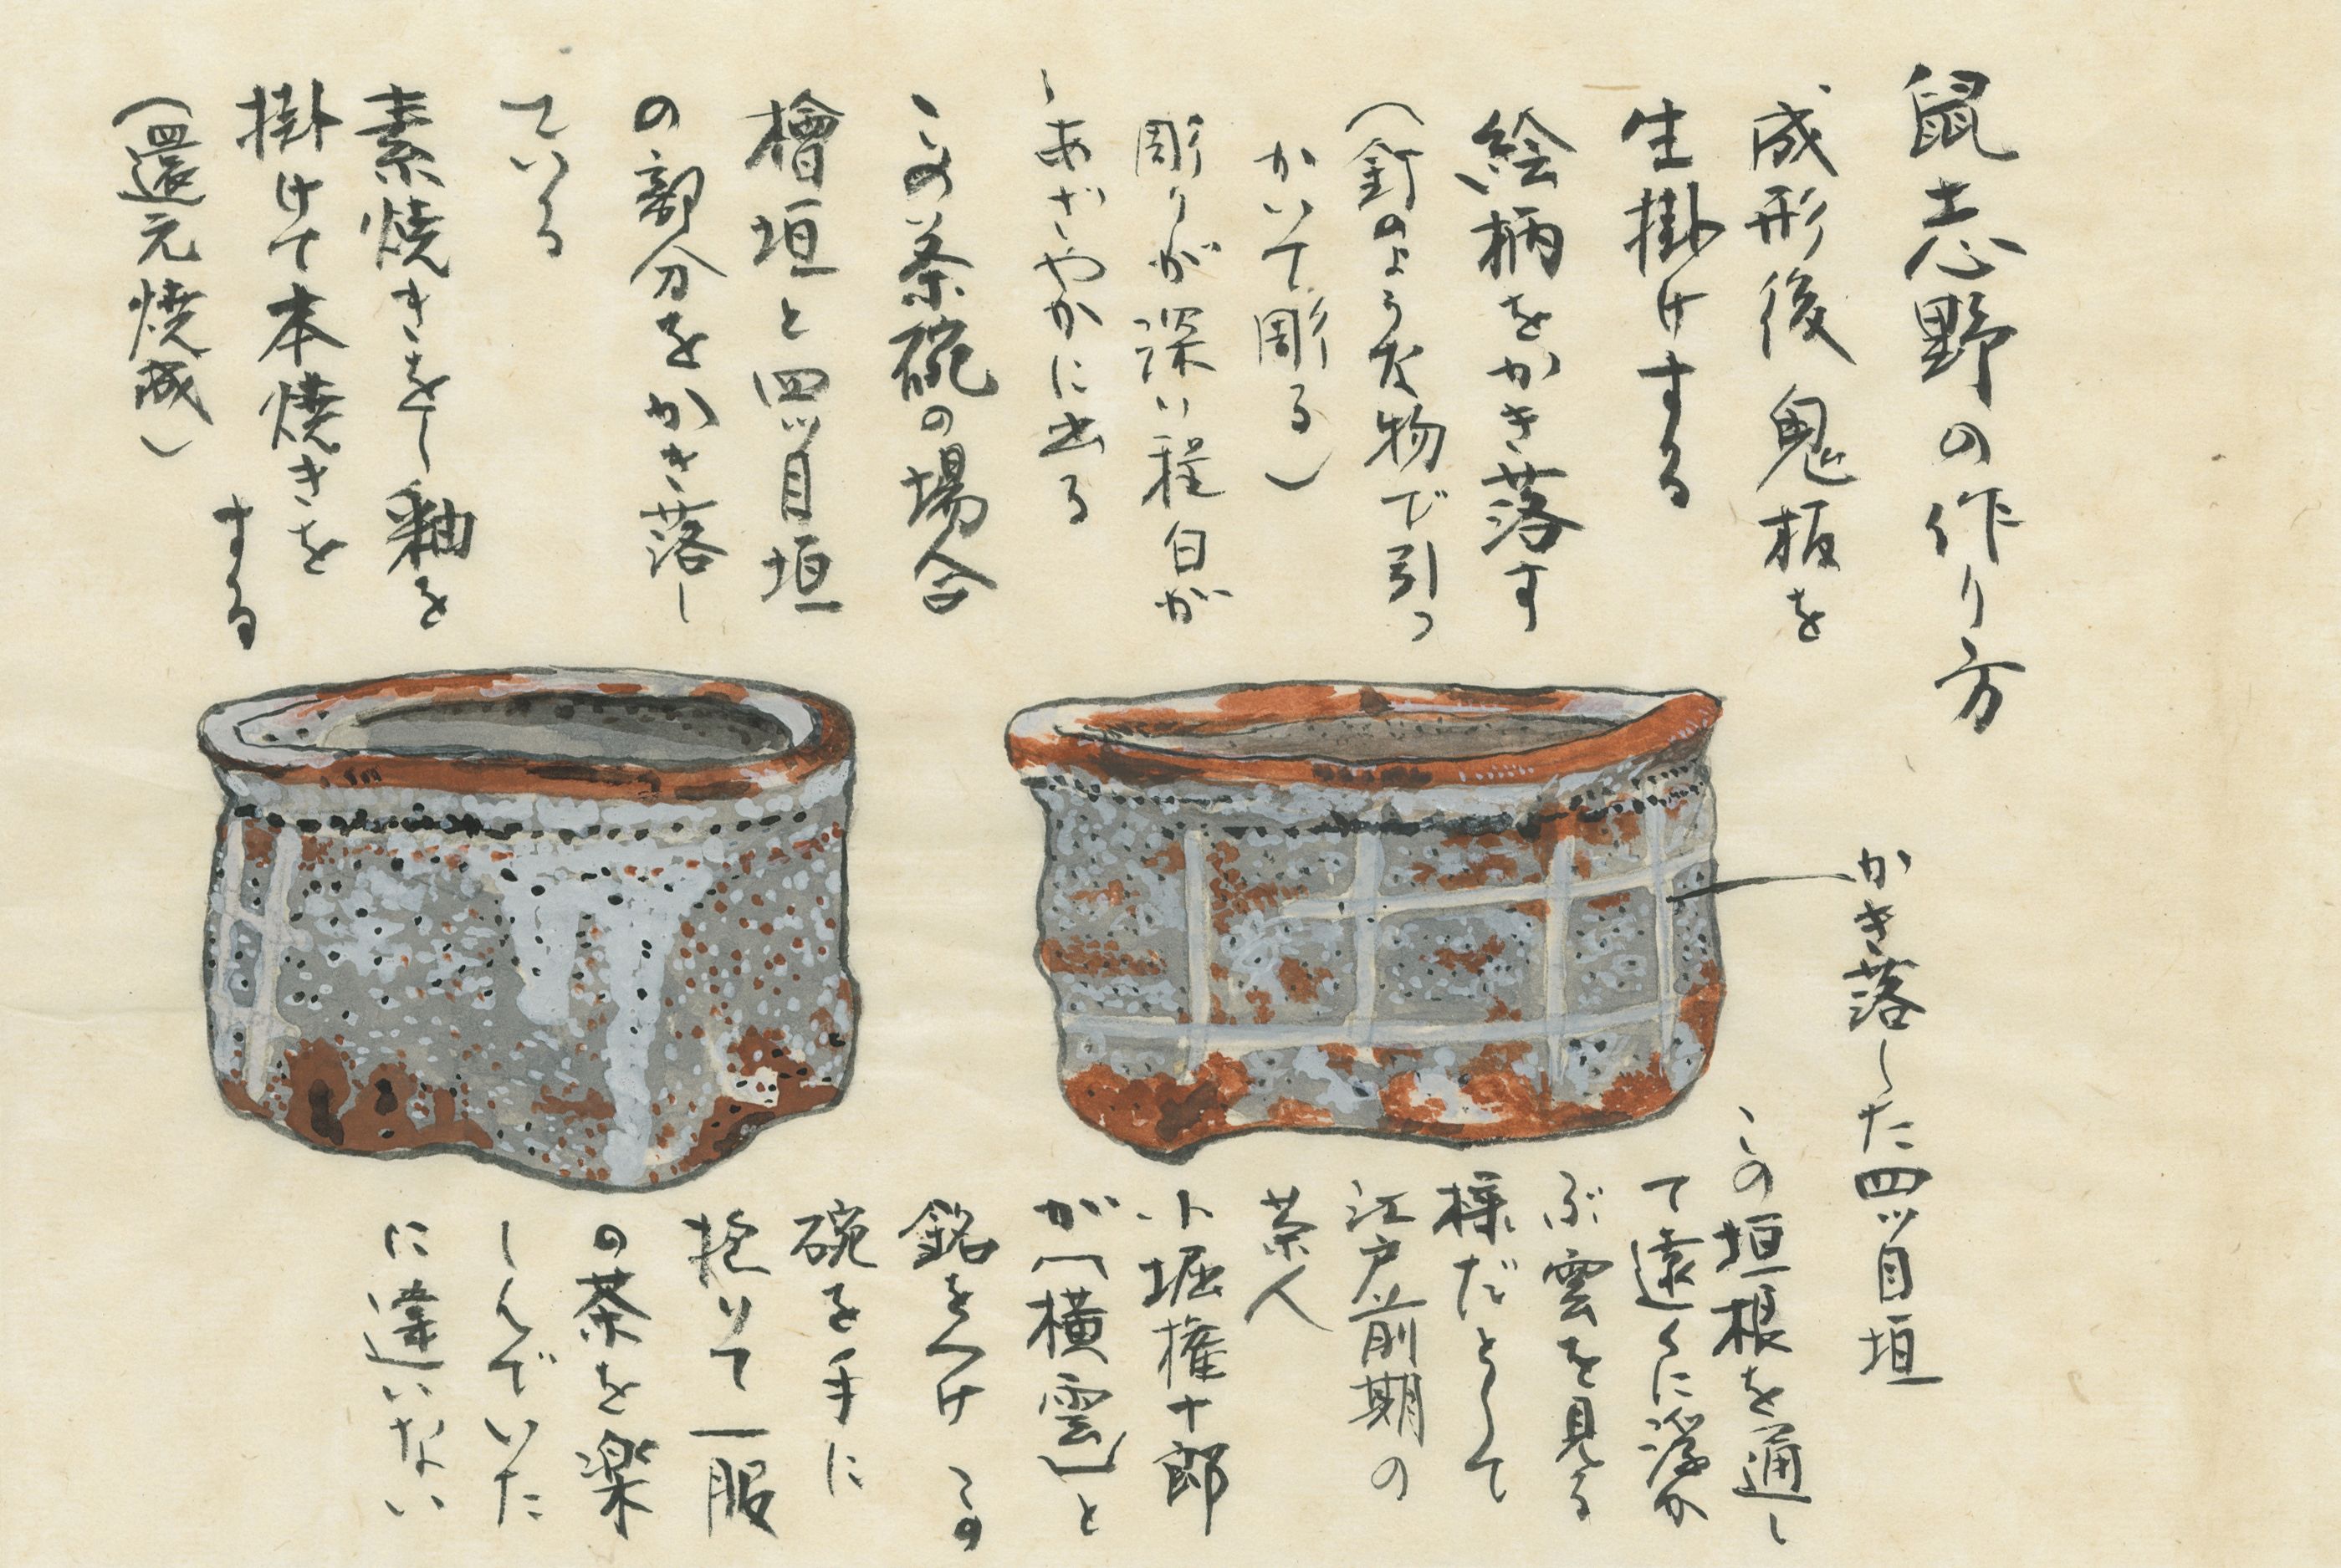 鼠志野の作り方
成形後鬼板を
生掛けする
絵柄をかき落す
（釘のような物で引っ
かいて彫る）
彫りが深い程白が
あざやかに出る
この茶碗の場合
檜垣と四ッ目垣
の部分をかき落し
ている
素焼きをし釉を
掛けて本焼きを
する
（還元焼成）
かき落した四ッ目垣
この垣根を通し
て遠くに浮か
ぶ雲を見る
様だとして
江戸前期の
茶人
小堀権十郎
が「横雲」と
銘をつけ この
碗を手に
抱いて一服
の茶を楽
しんでいた
に違いない